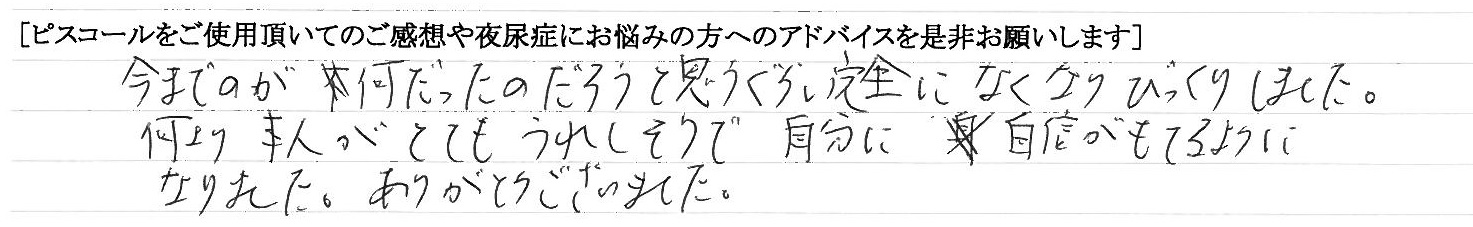 [ピスコールをご使用頂いてのご感想や夜尿症にお悩みの方へのアドバイスを是非お願いします]
今までのが何だったのだろうと思うぐらい完全になくなりびっくりしました。
何より本人がとてもうれしそうで自分に自信がもてるように
なりました。ありがとうございました。